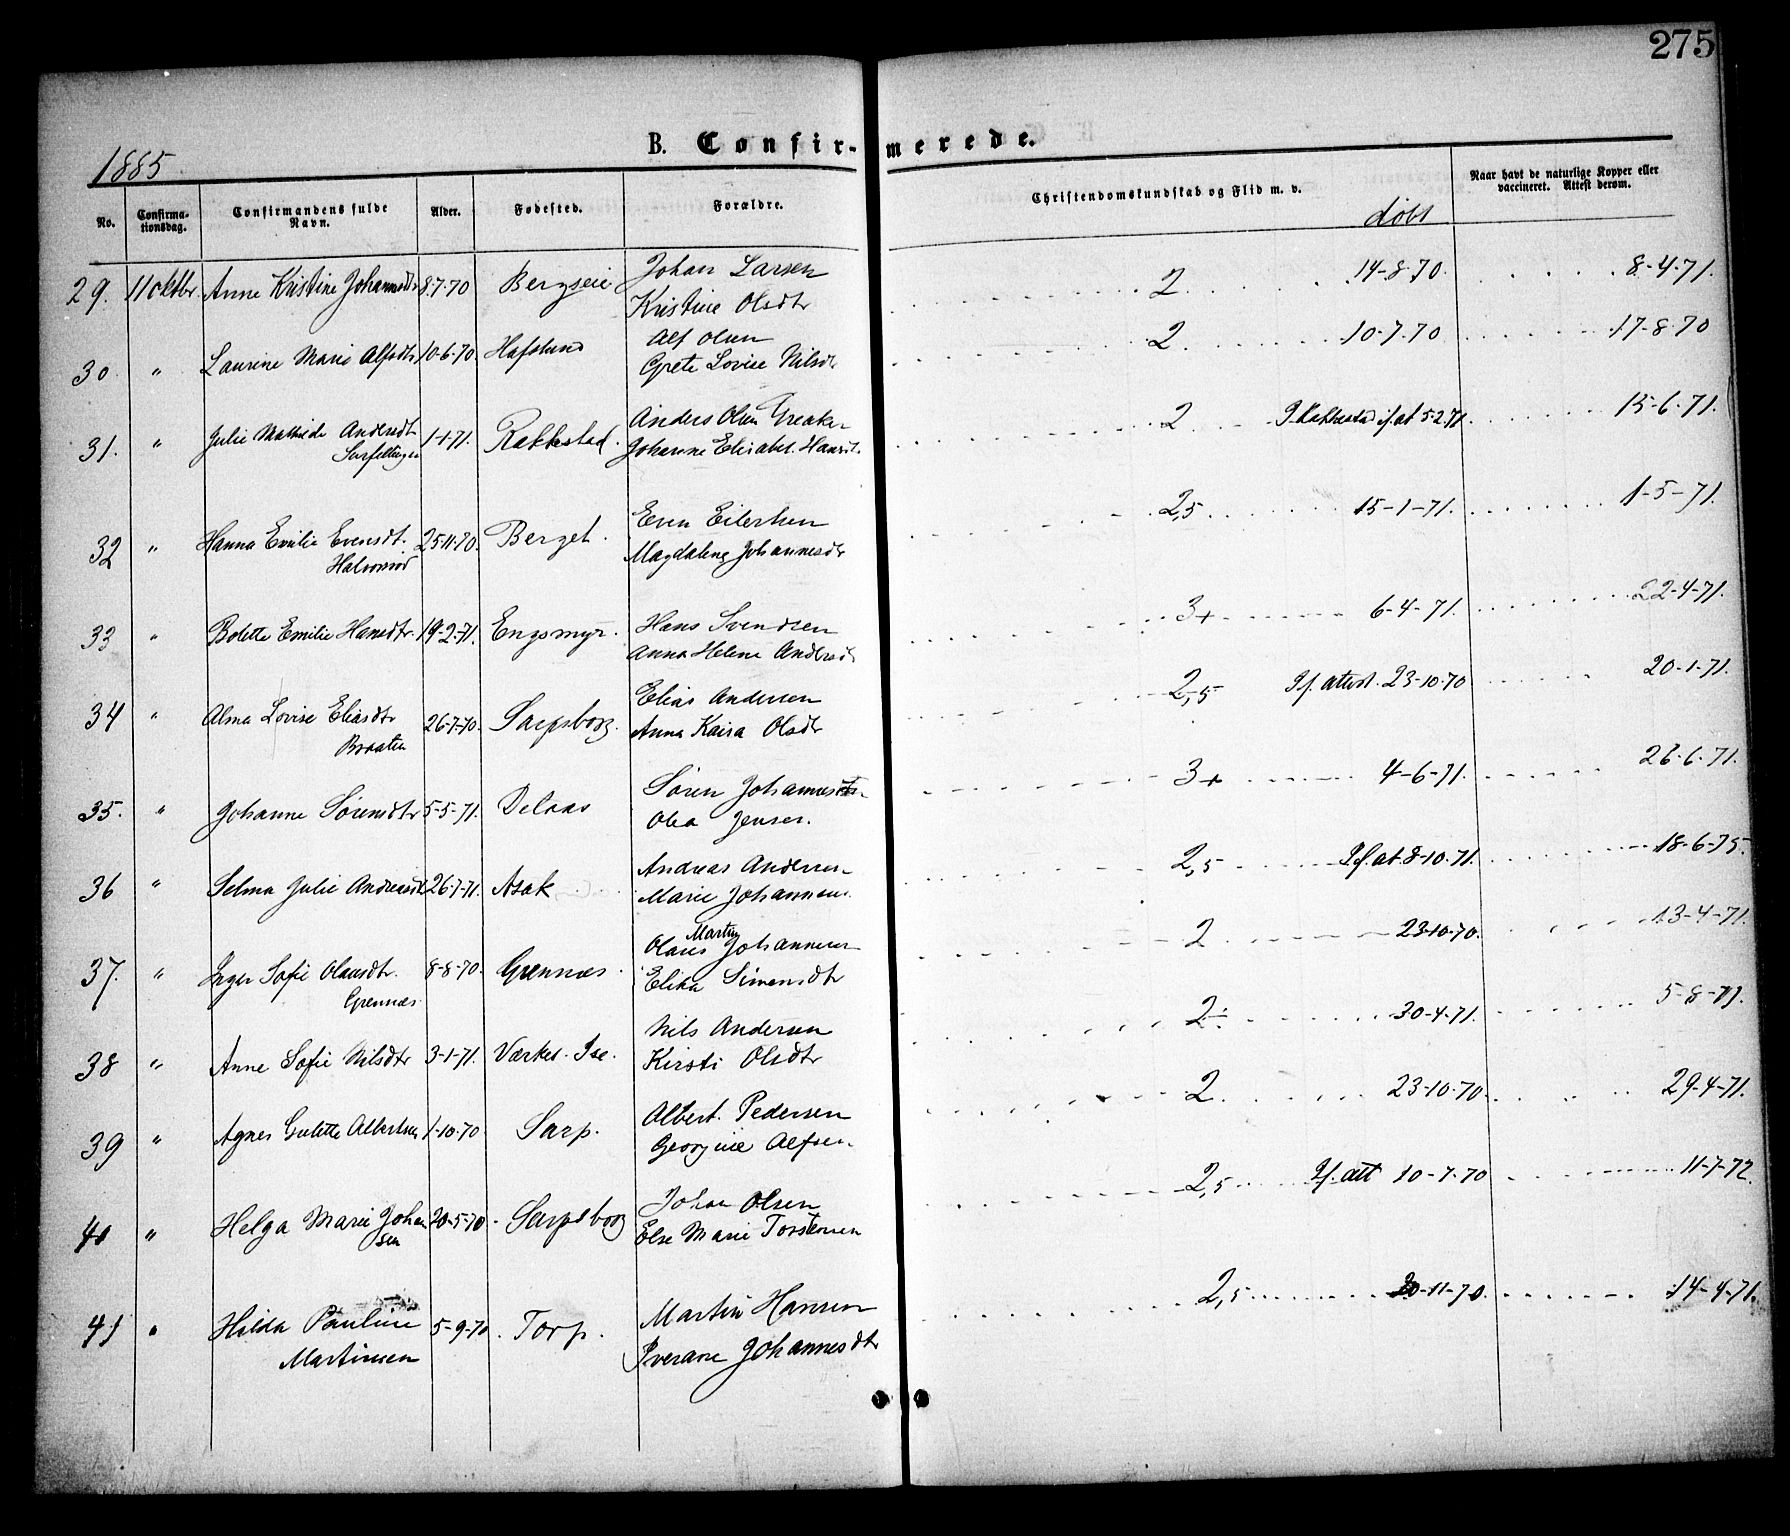 275
B. Confir- merede.
1885
No. Confirma-tionsdag. Confirmandens fulde Navn. Alder. Fødested. Forældre. Christendomskundskab og Flid m. v. døbt Naar havt de naturlige Kopper eller vaccineret. Attest derom.
29. 11 oktbr. Anne Kristine Johannsdtr 8-7-70 Bergseie Johan Larsen 2 14-8-70. 8-4-71.
Kristine Olsdtr
30 " Laurine Marie Alfsdtr 10-6-70. Hafslund Alf Olsen 2 10-7-70 17-8-70
Grete Lovise Nilsdtr
31. " Julie Mathilde Andersdt 1-1-71. Rakkestad. Anders Olsen Greaker 2 I Rakkestad if. at 5-2-71. 15-6-71.
Johanne Elisabet. Hansdt.
32 " Hanna Emilie Evensdt. 25-11-70. Berget. Even Eilertsen 2,5 15-1-71. 1-5-71.
Halvorsrød Magdalena Johannesdtr
33 " Bolette Emilie Hansdtr. 19-2-71. Engsmyr. Hans Svendsen 3+ 6-4-71. 22-4-71.
Anna Helene Andersdt
34 " Alma Lovise Eliasdtr 26-7-70. Sarpsborg. Elias Andersen 2,5 If. attest. 23-10-70 20-1-71.
Braaten Anna Kaisa Olsdtr
35. " Johanne Sørensdtr 5-5-71. Delaas Søren Johannes 3+ 4-6-71. 26-6-71.
Olea Jensen.
36 " Selma Julie Andreasdt 26-7-71. Asak Andreas Andersen 2,5 If at 8-10-71. 18-6-75.
Marie Johannesen.
37. " Inger Sofie Olausdtr. 8-8-70. Grennæs. Olaus Martin Johannesen 2 23-10-70. 13-4-71.
Grennæs. Elika Simensdtr
38 " Anne Sofie Nilsdtr 3-1-71. Værket. Ise. Nils Andersen 2÷ 30-4-71. 5-8-71.
Kirsti Olsdtr
39 " Agnes Gulette Albertsen 1-10-70. Sarp. Albert. Pedersen 2 23-10-70. 29-4-71.
Georgine Alfsen.
40 " Helga Marie Johan 20-5-70. Sarpsborg Johan Olsen 2,5 If. att 10-7-70 11-7-72.
sen Else Marie Torstensen
41 " Hilda Pauline 5-9-70. Torp. Martin Hansen 2,5 20-11-70. 14-4-71.
Martinsen Iverane Johannesdtr